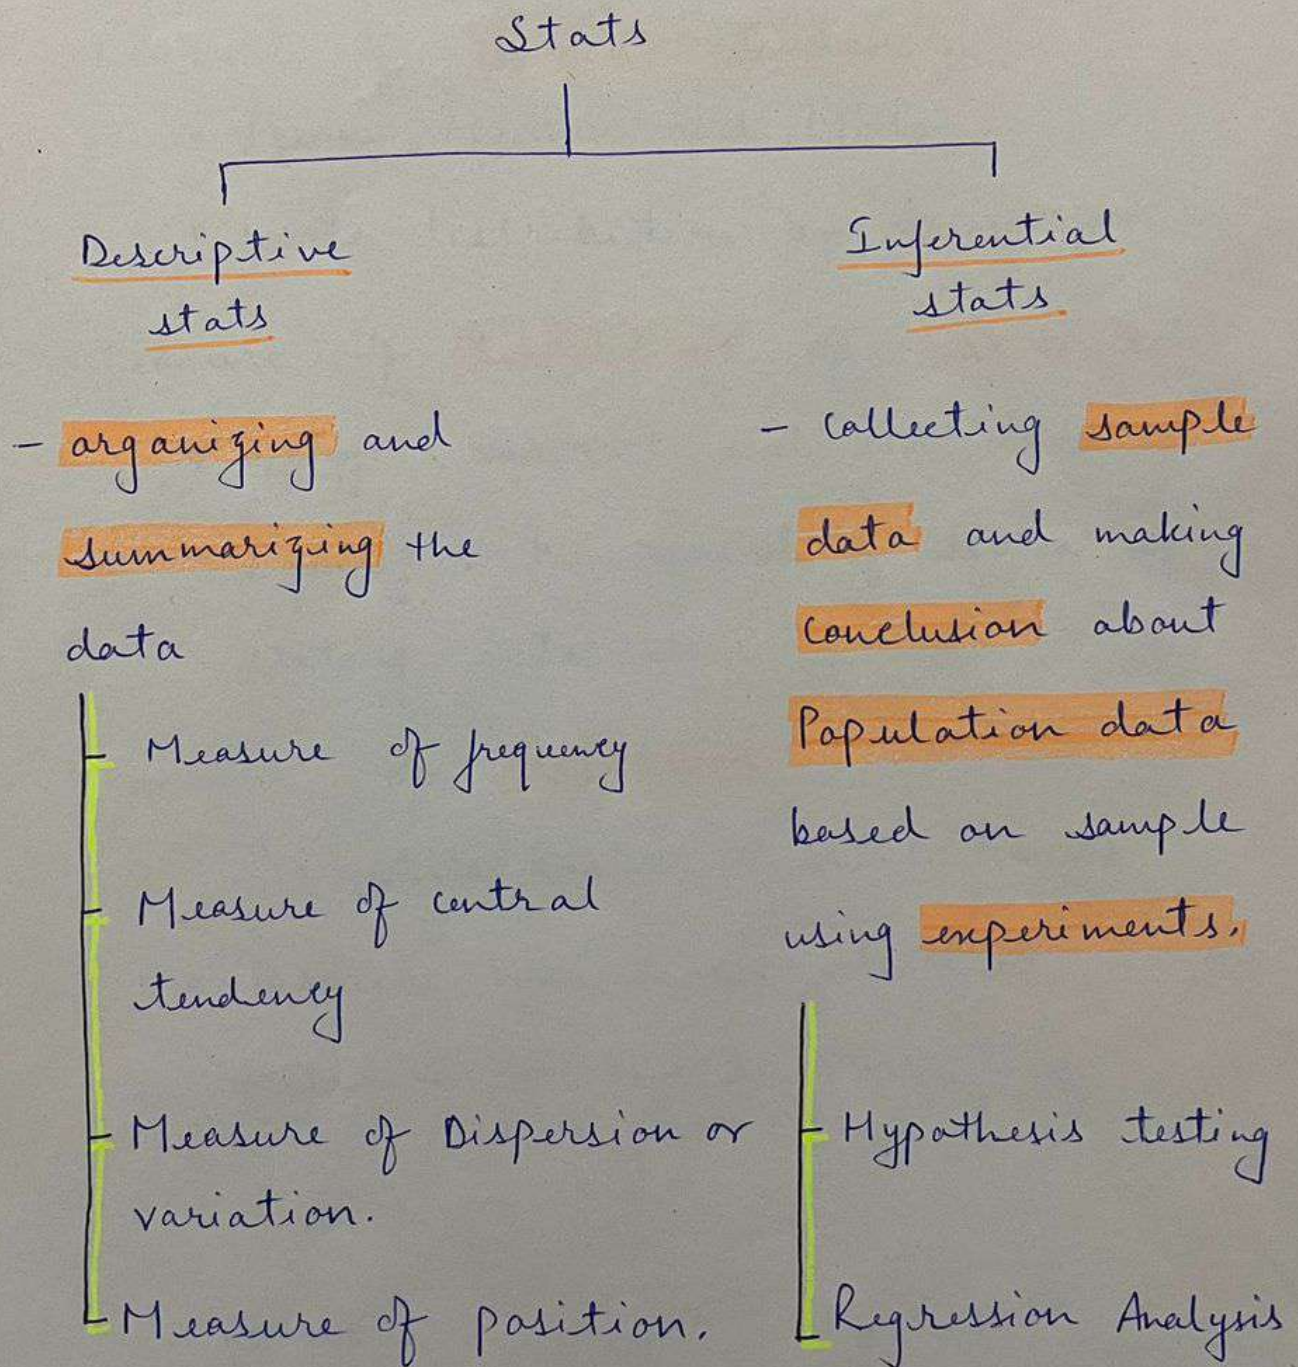 Stats
Descriptive
stats
- organizing and
summarizing the
data
Measure of frequency
Measure of central
tendency
Measure of Dispersion or
variation.
Measure of position.
Inferential
stats
- Collecting sample
data and making
conclusion about
Population data
based on sample
using experiments.
Hypothesis testing
Regression Analysis